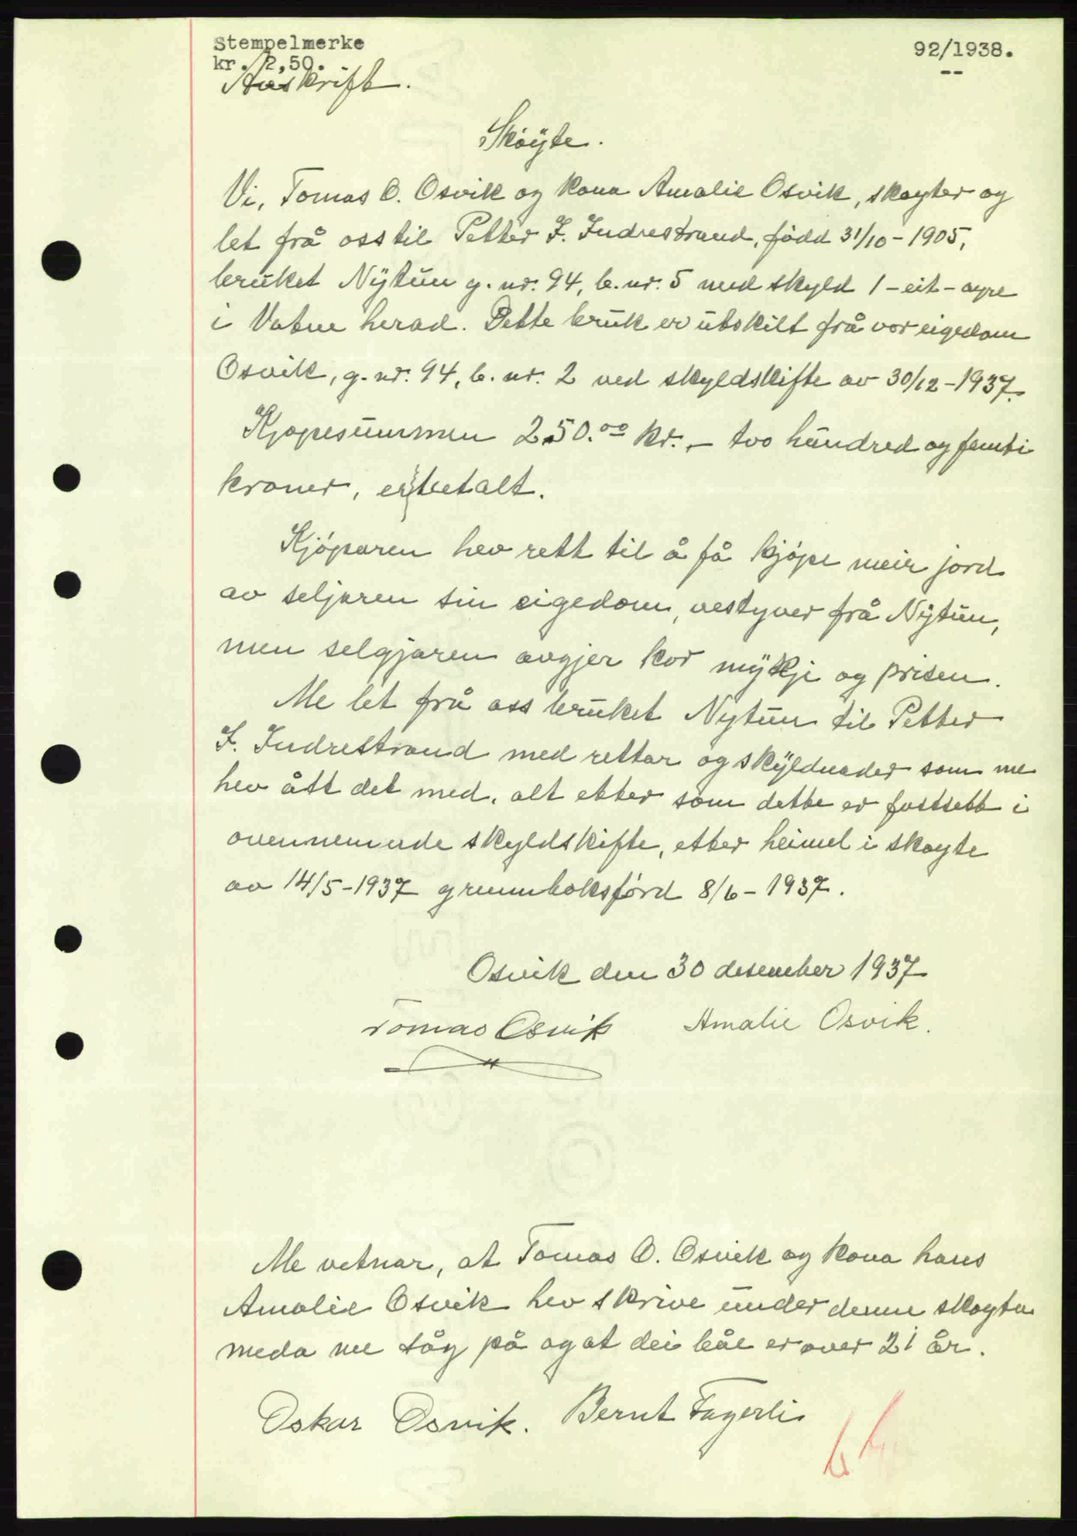 Stempelmerke
kr. 2,50.
92/1938.
--
Avskrift.
Skøyte.
Vi, Tomas O. Osvik og kona Amalie Osvik, skøyter og
let frå oss til Petter I. Indrestrand, född 31/10-1905,
bruket Nytun g. nr. 94, b. nr. 5 med skyld 1 - eit - øyre
i Vatne herad. Dette bruk er utskilt frå vor eigedom
Osvik, g. nr. 94, b. nr. 2 ved skyldskifte av 30/12-1937.
Kjøpesummen 250.00 kr. - tvo hundred og femti
kroner, er betalt.
Kjøparen hev rett til å få kjøpe meir jord
av seljaren sin eigedom, vestyver frå Nytun,
men selgjaren avgjer kor mykje og prisen.
Me let frå oss bruket Nytun til Petter
I. Indrestrand med rettar og skyldnader som me
hev ått det med, alt etter som dette er fastsett i
ovennemnde skyldskifte, etter heimel i skøyte
av 14/5-1937 grunnboksförd 8/6-1937.
Osvik den 30 desember 1937
Tomas Osvik Amalie Osvik.
Me vetnar, at Tomas O. Osvik og kona hans
Amalie Osvik hev skrive under denne skøyta
meda me såg på og at dei båe er over 21 år.
Oskar Osvik. Bernt Fagerli